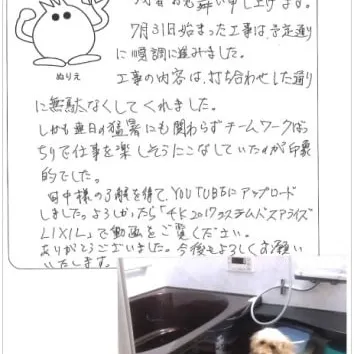 お見舞い申し上げます。
7月31日始まった工事は、予定通り
に順調に進みました。
ぬりえ
工事の内容は、打ち合わせした通り
に無駄なくしてくれました。
しかも連日の猛暑にも関わらずチームワークばっ
ちりで仕事を楽しそうにこなしていたのが印象
的でした。
田中様の了解を得て、YOUTUBEにアップロード
しました。よろしかったら「4K 2017 システムバスアライズ
LIXIL」で動画をご覧ください。
ありがとうございました。今後もよろしくお願い
いたします。